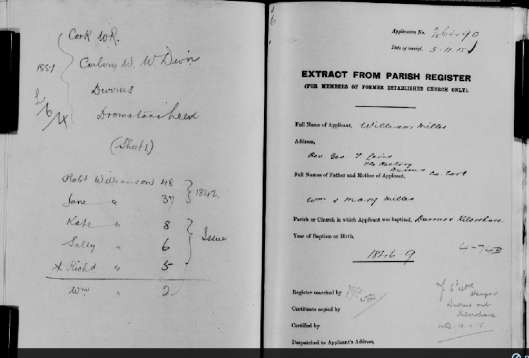 Cork W.R.
1851
Carbery W. W. Divn
Durrus
Dromataniheen
(Sheet 1)
Robt Williamson 48
Jane " 37
1842
Kate " 8
Sally " 6
Issue
x Richd " 5
Wm " 2
Application No.
Date of receipt, 5.11.15
EXTRACT FROM PARISH REGISTER
(FOR MEMBERS OF FORMER ESTABLISHED CHURCH ONLY).
Full Name of Applicant, William Miller
Address,
Rev. Geo
The Rectory
Durrus Co. Cork
Full Names of Father and Mother of Applicant,
Wm & Mary Miller
Parish or Church in which Applicant was baptized, Durrus Kilcrohane
Year of Baptism or Birth,
1846-9
Register searched by
Certificate copied by
Durrus and
Kilcrohane
Certified by
Despatched to Applicant's Address,